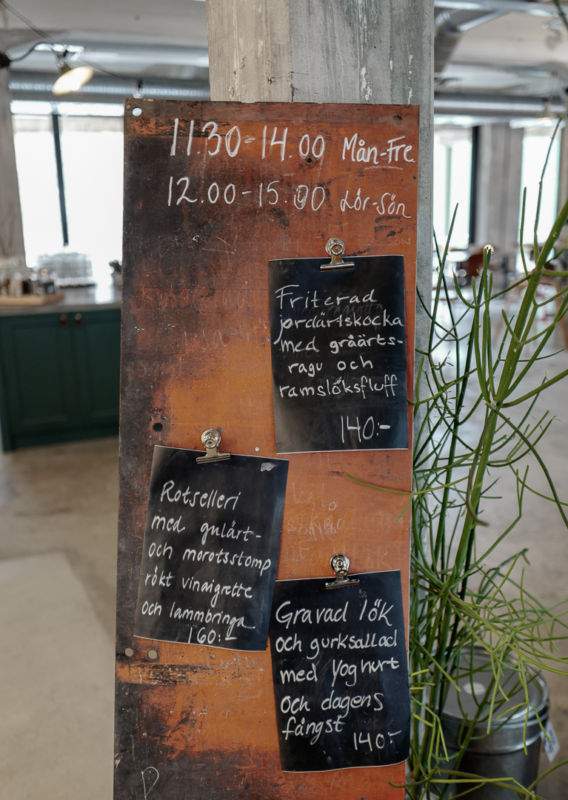 11.30-14.00 Mån-Fre
12.00-15.00 Lör-Sön
Friterad
jordärtskocka
med gråärts-
ragu och
ramslöksfluff
140:-
Rotselleri
med gulärt-
och morotsstomp
rökt vinaigrette
och lammbringa
160:-
Gravad lök
och gurksallad
med yoghurt
och dagens
fångst
140:-